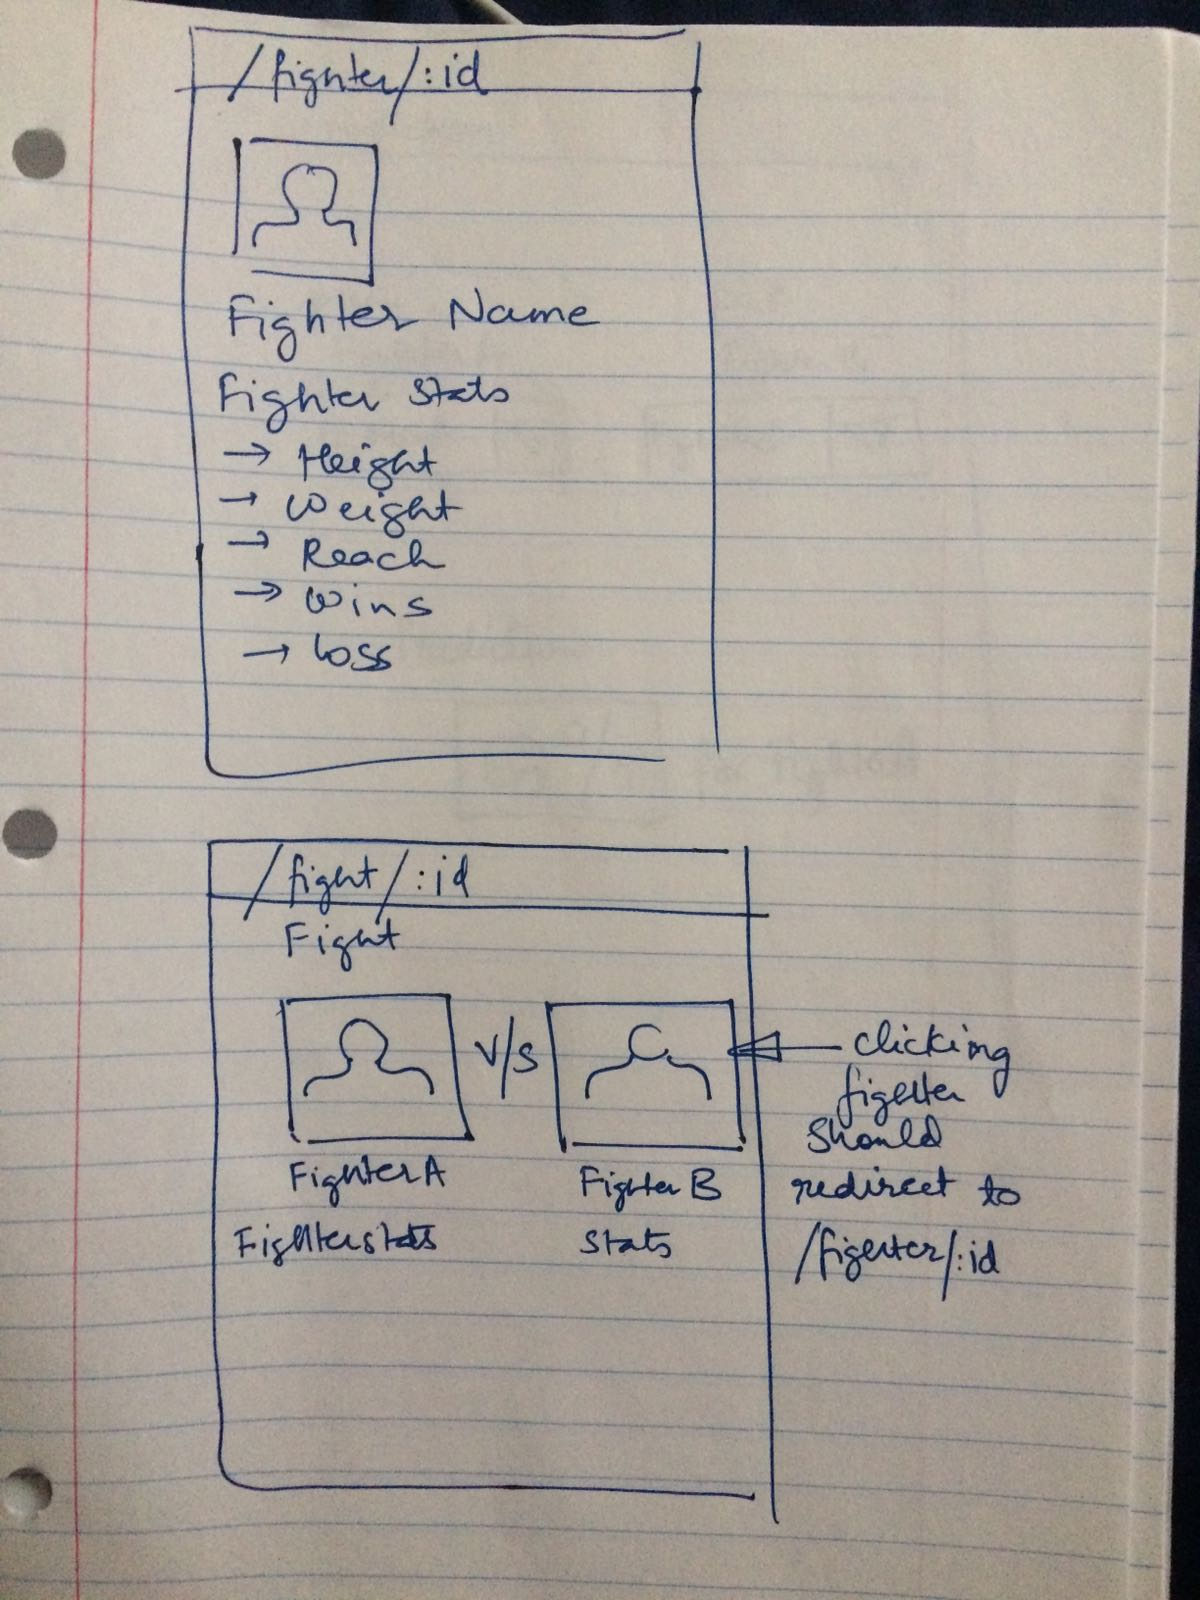 /fighter/:id
Fighter Name
Fighter Stats
→ Height
→ Weight
→ Reach
→ Wins
→ Loss
/fight/:id
Fight
V/S
Fighter A
Fighter B
Fighter stats
Stats
clicking
fighter
should
redirect to
/fighter/:id